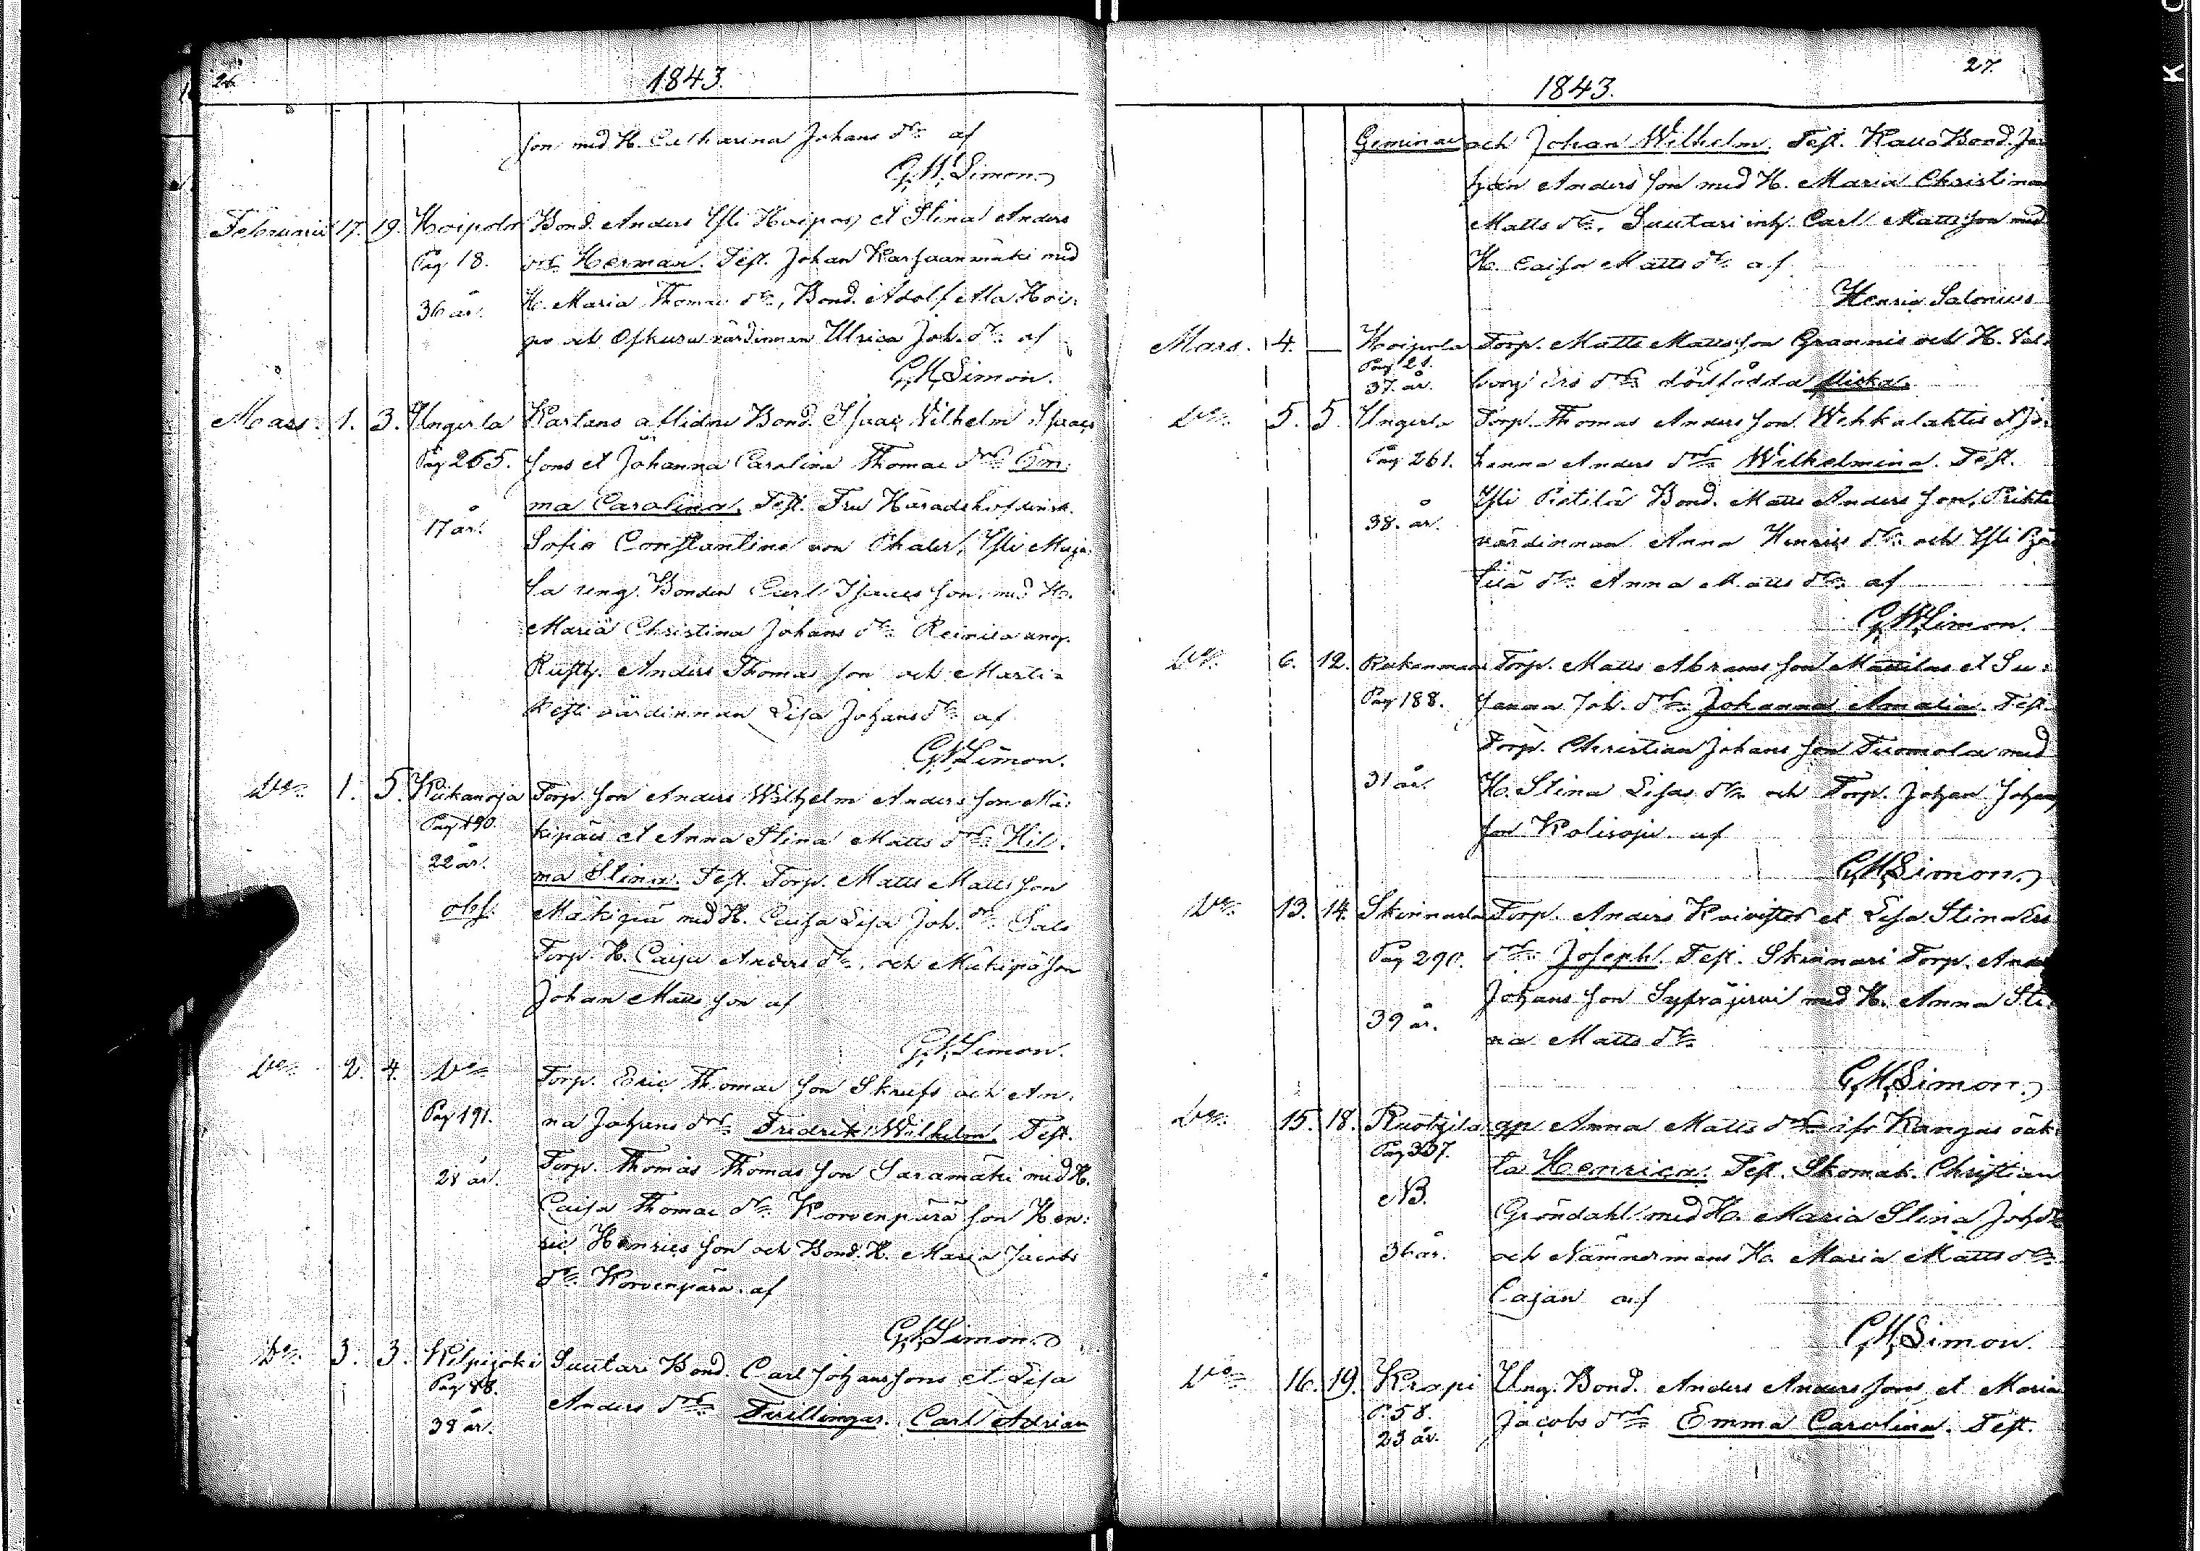 26.
1843.
son med H. Catharina Johans dr af
G.W. Simon.
Februarii 17. 19. Hoipola Bond. Anders Yli Hoipos et Stina Anders
Pag 18. drs Herman. Test. Johan Karjaanmäki med
36 år. H. Maria Thomae dr, Bond. Adolf Ala Hoi-
po och värdinnan Ulrica Joh. dr af
G.W. Simon.
Mars. 1. 3. Ungerla Karlans aflidne Bond. Isaac Wilhelm Isaacs
Pag 265. sons et Johanna Carolina Thomae drs Em-
ma Carolina. Test. Fru Häradshöfdinsk.
17 år. Sofia Constantine von Thaler, Yli Maja-
la ung. Bonden Carl Isaacs son med H.
Maria Christina Johans dr Reinila ung.
Rusth. Anders Thomae son och Marti-
värdinnan Lisa Johans dr af
G.W. Simon.
Do 1. 5. Kiikanoja Torp. son Anders Wilhelm Anders son Mä-
Pag 190. kipäis et Anna Stina Matts drs Hil-
22 år. ma Stina. Test. Torp. Matts Matts son
obs. Mäkipää med H. Caisa Lisa Joh. dr Salo
Torp. H. Caisa Anders dr, och Mäkipä son
Johan Matts son af
G.W. Simon.
Do 2. 4. Do Torp. Eric Thomae son Skrufs och An-
Pag 191. na Johans drs Fredrik Wilhelm. Test.
Torp. Thomas Thomae son Saramäki med H.
28 år. Caisa Thomae dr Korvenpärä son Hen-
ric Henrics son och Bond. H. Maria Jacobs
dr Korvenpära af
G.W. Simon.
Do 3. 3. Kilpijoki Suutari Bond. Carl Johans sons et Lisa
Pag 88. Anders drs Tvillingar. Carl Adrian
38 år.
27.
1843.
Geminae och Johan Wilhelm. Test. Bond. Jo-
han Anders son med H. Maria Christina
Matts dr, Suutari inh. Carl Matts son med
H. Caisa Matts dr af
Henric Salonius
Mars. 4. — Hoipola Torp. Matts Matts son Grannis och H. Val-
Pag 21.
37 år. borg Ers drs dödfödda flicka.
Do 5. 5. Ungerla Torp. Thomas Anders son Wehkalahtis et Jo-
Pag 261. hanna Anders drs Wilhelmina. Test.
Yli Pietilä Bond. Matts Anders son,
38 år. värdinnan Anna Henrics dr och Yli
dr Anna Matts dr af
G.W. Simon.
Do 6. 12. Torp. Matts Abrams son Mattilas et Su-
Pag 188. sanna Joh. drs Johanna Amalia. Test.
Torp. Christian Johans son Tuomola med
31 år. H. Stina Lisas dr och Torp. Johan Johans
son Kolisoja af
G.W. Simon.
Do 13. 14. Skinnarla Torp. Anders Koivistos et Lisa Stina Ers
Pag 290. drs Joseph. Test. Skinnari Torp. Anders
Johans son Syssäjervi med H. Anna Sti-
39 år. na Matts dr
G.W. Simon.
Do 15. 18. Ruotzila qp Anna Matts drs ifr. Kangas oäk-
Pag 337. ta Henrica. Test. Skomak. Christian
NB. Gröndahl med H. Maria Stina Joh. dr
36 år. och Nämnermans H. Maria Matts dr
Cajan af
G.W. Simon.
Do 16. 19. Krapi Ung. Bond. Anders Anders sons et Maria
P. 58. Jacobs drs Emma Carolina. Test.
23 år.